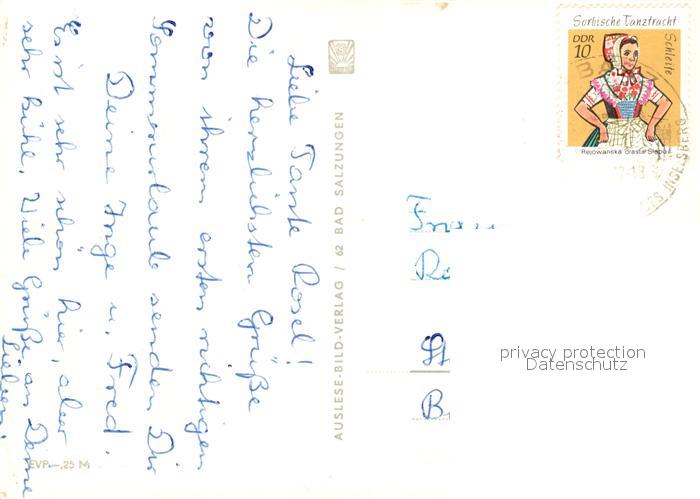 Liebe Tante Rosel!
Die herzlichsten Grüße
von ihrem ersten richtigen
Sommerurlaub senden Dir
Deine Inge u. Fred.
Es ist sehr schön hier, aber
sehr kühl. Viele Grüße an Deine
Lieben!
EVP -,25 M
AUSLESE-BILD-VERLAG / 62 BAD SALZUNGEN
Sorbische Tanztracht
DDR
10
Schleife
Rejowanska drasta Slepo
BA
INSELSBERG
Frau
Ro
St
B
privacy protection
Datenschutz